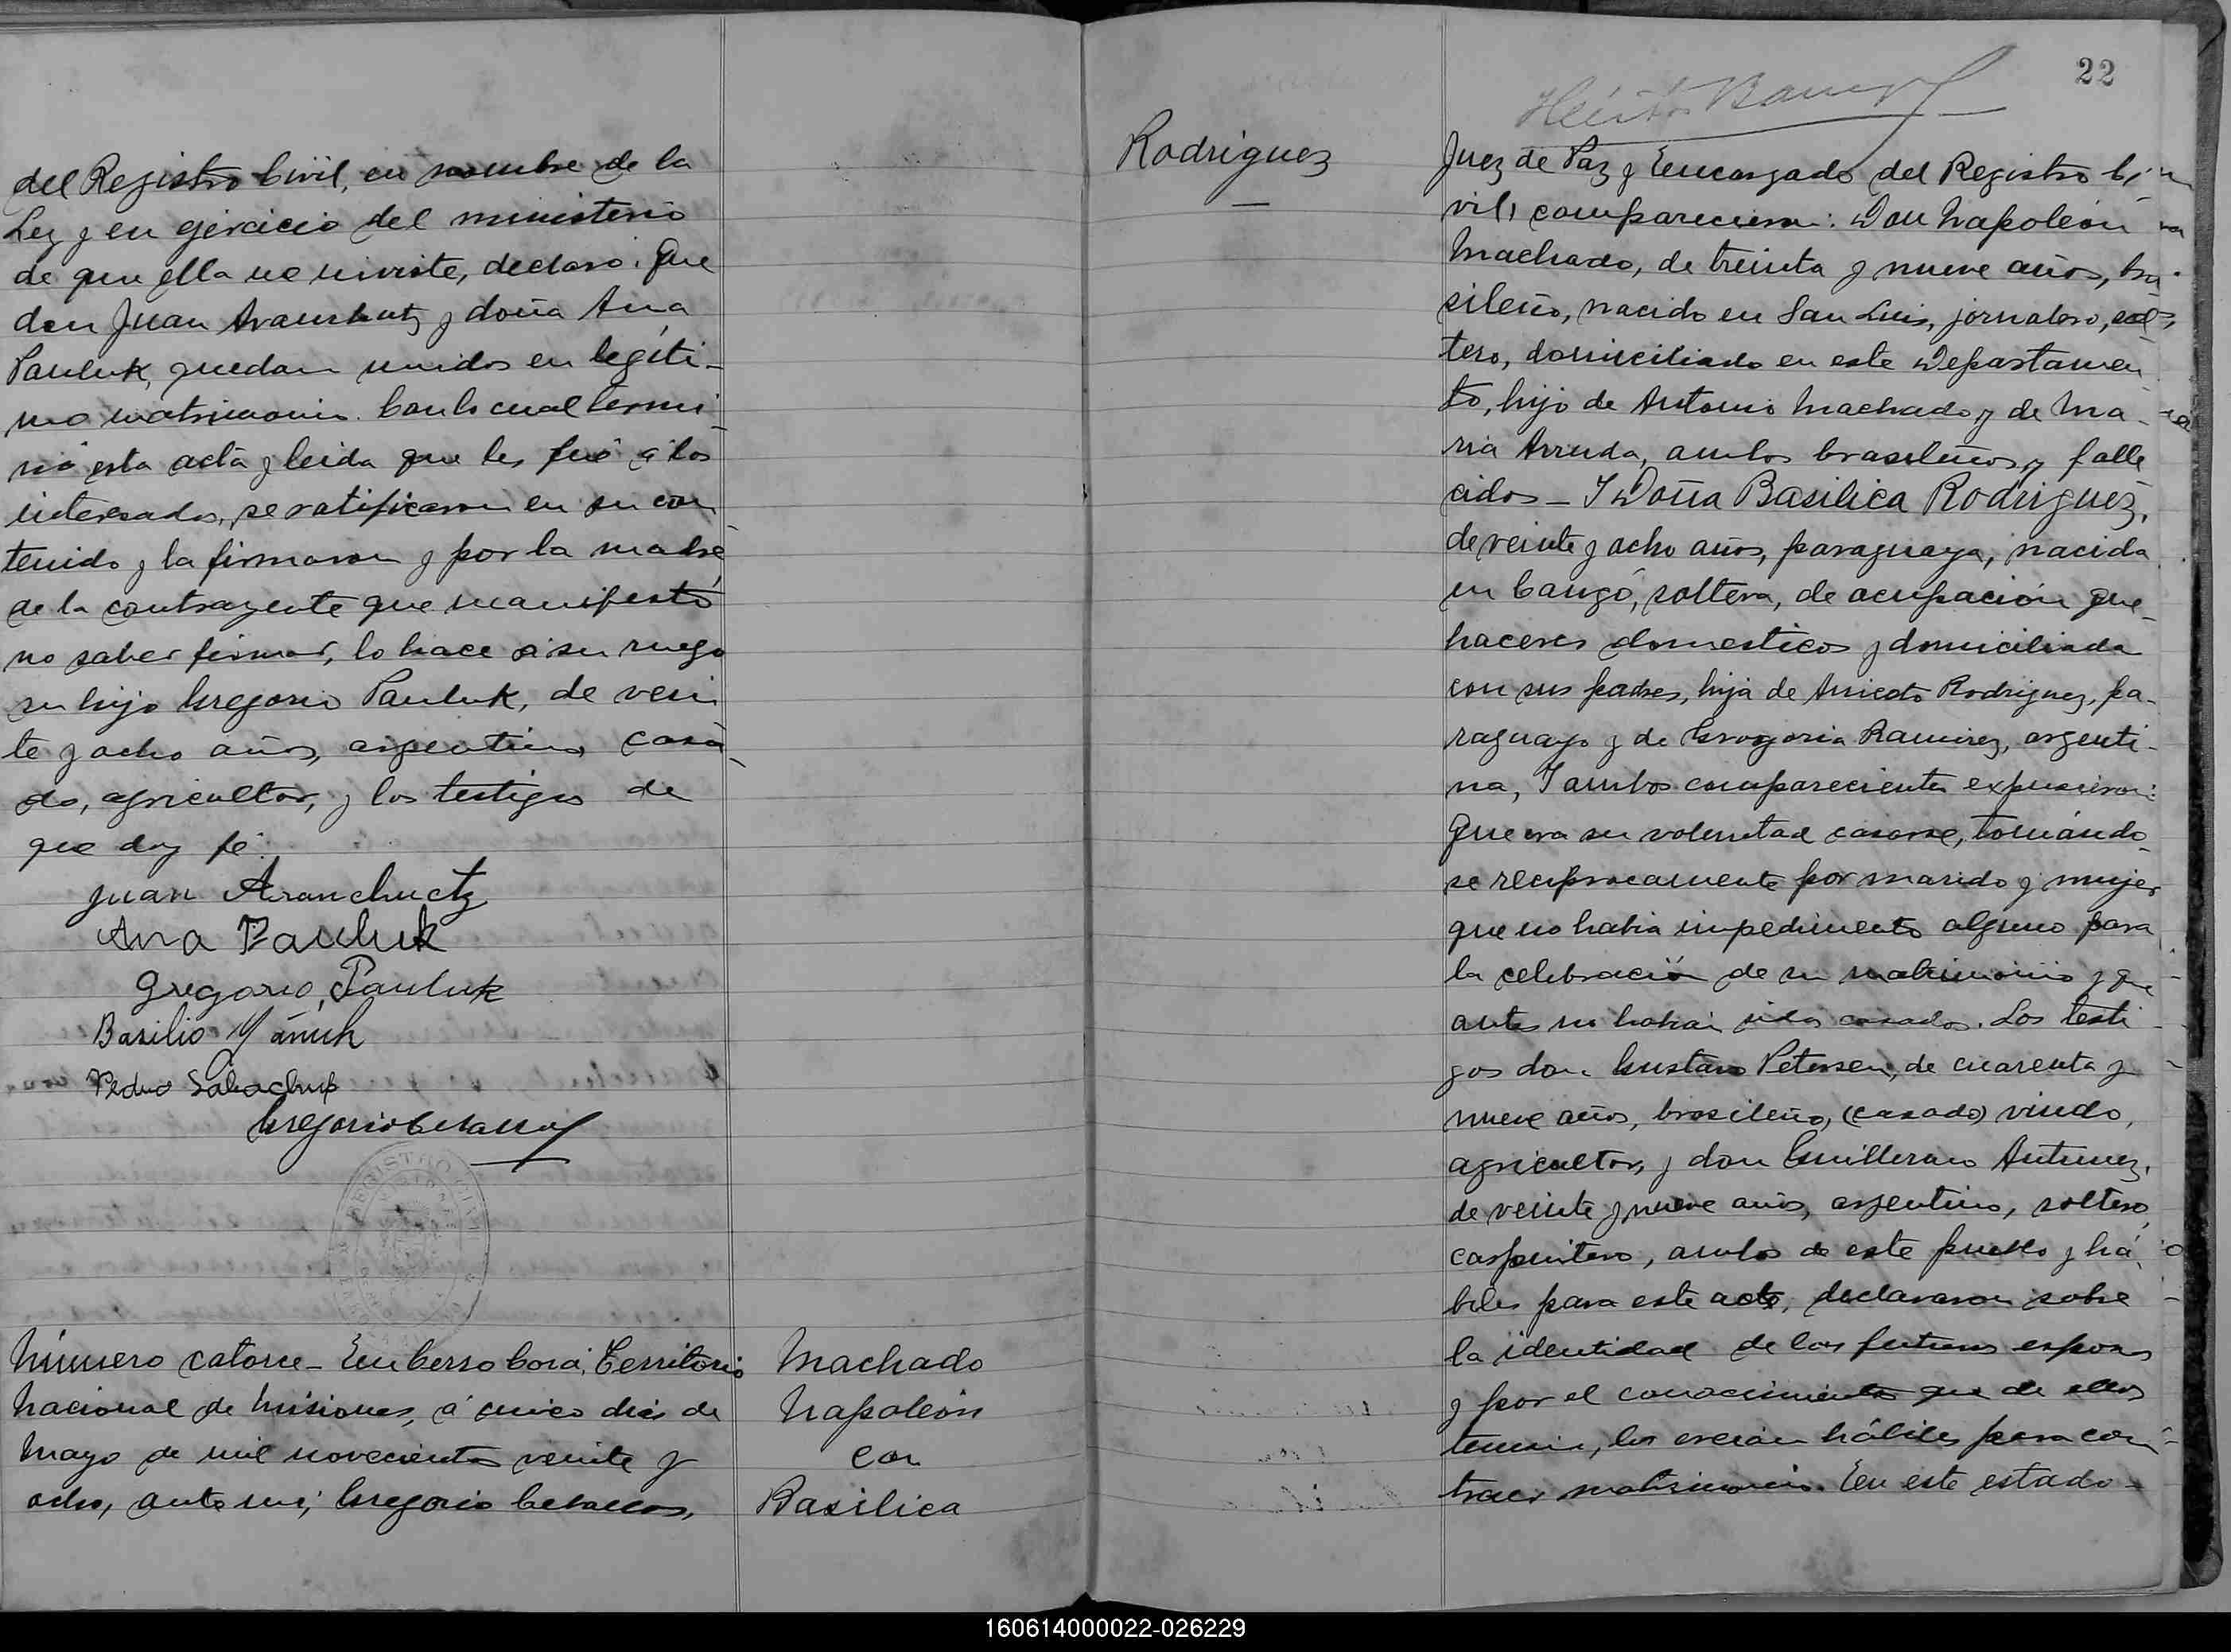 del Registro Civil, en nombre de la
Ley y en ejercicio del ministerio
de que ella me inviste, declaro: Que
don Juan Aranchutz y doña Ana
Pauluk, quedan unidos en legíti-
mo matrimonio. Con lo cual termi-
nó esta acta y leida que les fué á los
interesados, se ratificaron en su con
tenido y la firmaron y por la madre
de la contrayente que manifestó
no saber firmar, lo hace a su ruego
su hijo Gregorio Pauluk, de vein
te y ocho años, argentino, casa-
do, agricultor, y los testigos de
que doy fé.
Juan Aranchuctz
Ana Pauluk
Gregorio Pauluk
Basilio Yánuk
Pedro
Gregorio Ceballos
REGISTRO CIVIL
Número catorce - En Cerro Corá, Territorio
Nacional de Misiones, á cinco dias de
Mayo de mil novecientos veinte y
ocho, ante mi; Gregorio Ceballos,
Machado
Napoleón
con
Basilica
Rodriguez
22
Héctor
Juez de Paz y Encargado del Registro Ci-
vil, comparecieron: Don Napoleón
Machado, de treinta y nueve años, bra
sileño, nacido en San Luis, jornalero, sol-
tero, domiciliado en este Departamen
to, hijo de Antonio Machado y de Ma-
ria Arruda, ambos brasileños y falle
cidos - Y Doña Basilica Rodriguez,
de veinte y ocho años, paraguaya, nacida
en Cangó, soltera, de ocupación que-
haceres domesticos y domiciliada
con sus padres, hija de Aniceto Rodriguez, pa-
raguayo y de Gregoria Ramirez, argenti-
na, Y ambos comparecientes expusieron:
Que era su voluntad casarse, tomándo-
se reciprocamente por marido y mujer
que no habia impedimento alguno para
la celebración de su matrimonio y que
antes no habian sido casados. Los testi-
gos don Gustavo Petersen, de cuarenta y
nueve años, brasileño, (casado) viudo,
agricultor, y don Guillermo Antunez,
de veinte y nueve años, argentino, soltero,
carpintero, ambos de este pueblo y há-
biles para este acto, declararon sobre
la identidad de los futuros esposos
y por el conocimiento que de ellos
tenian, los creian hábiles para con-
traer matrimonio. En este estado -
160614000022-026229